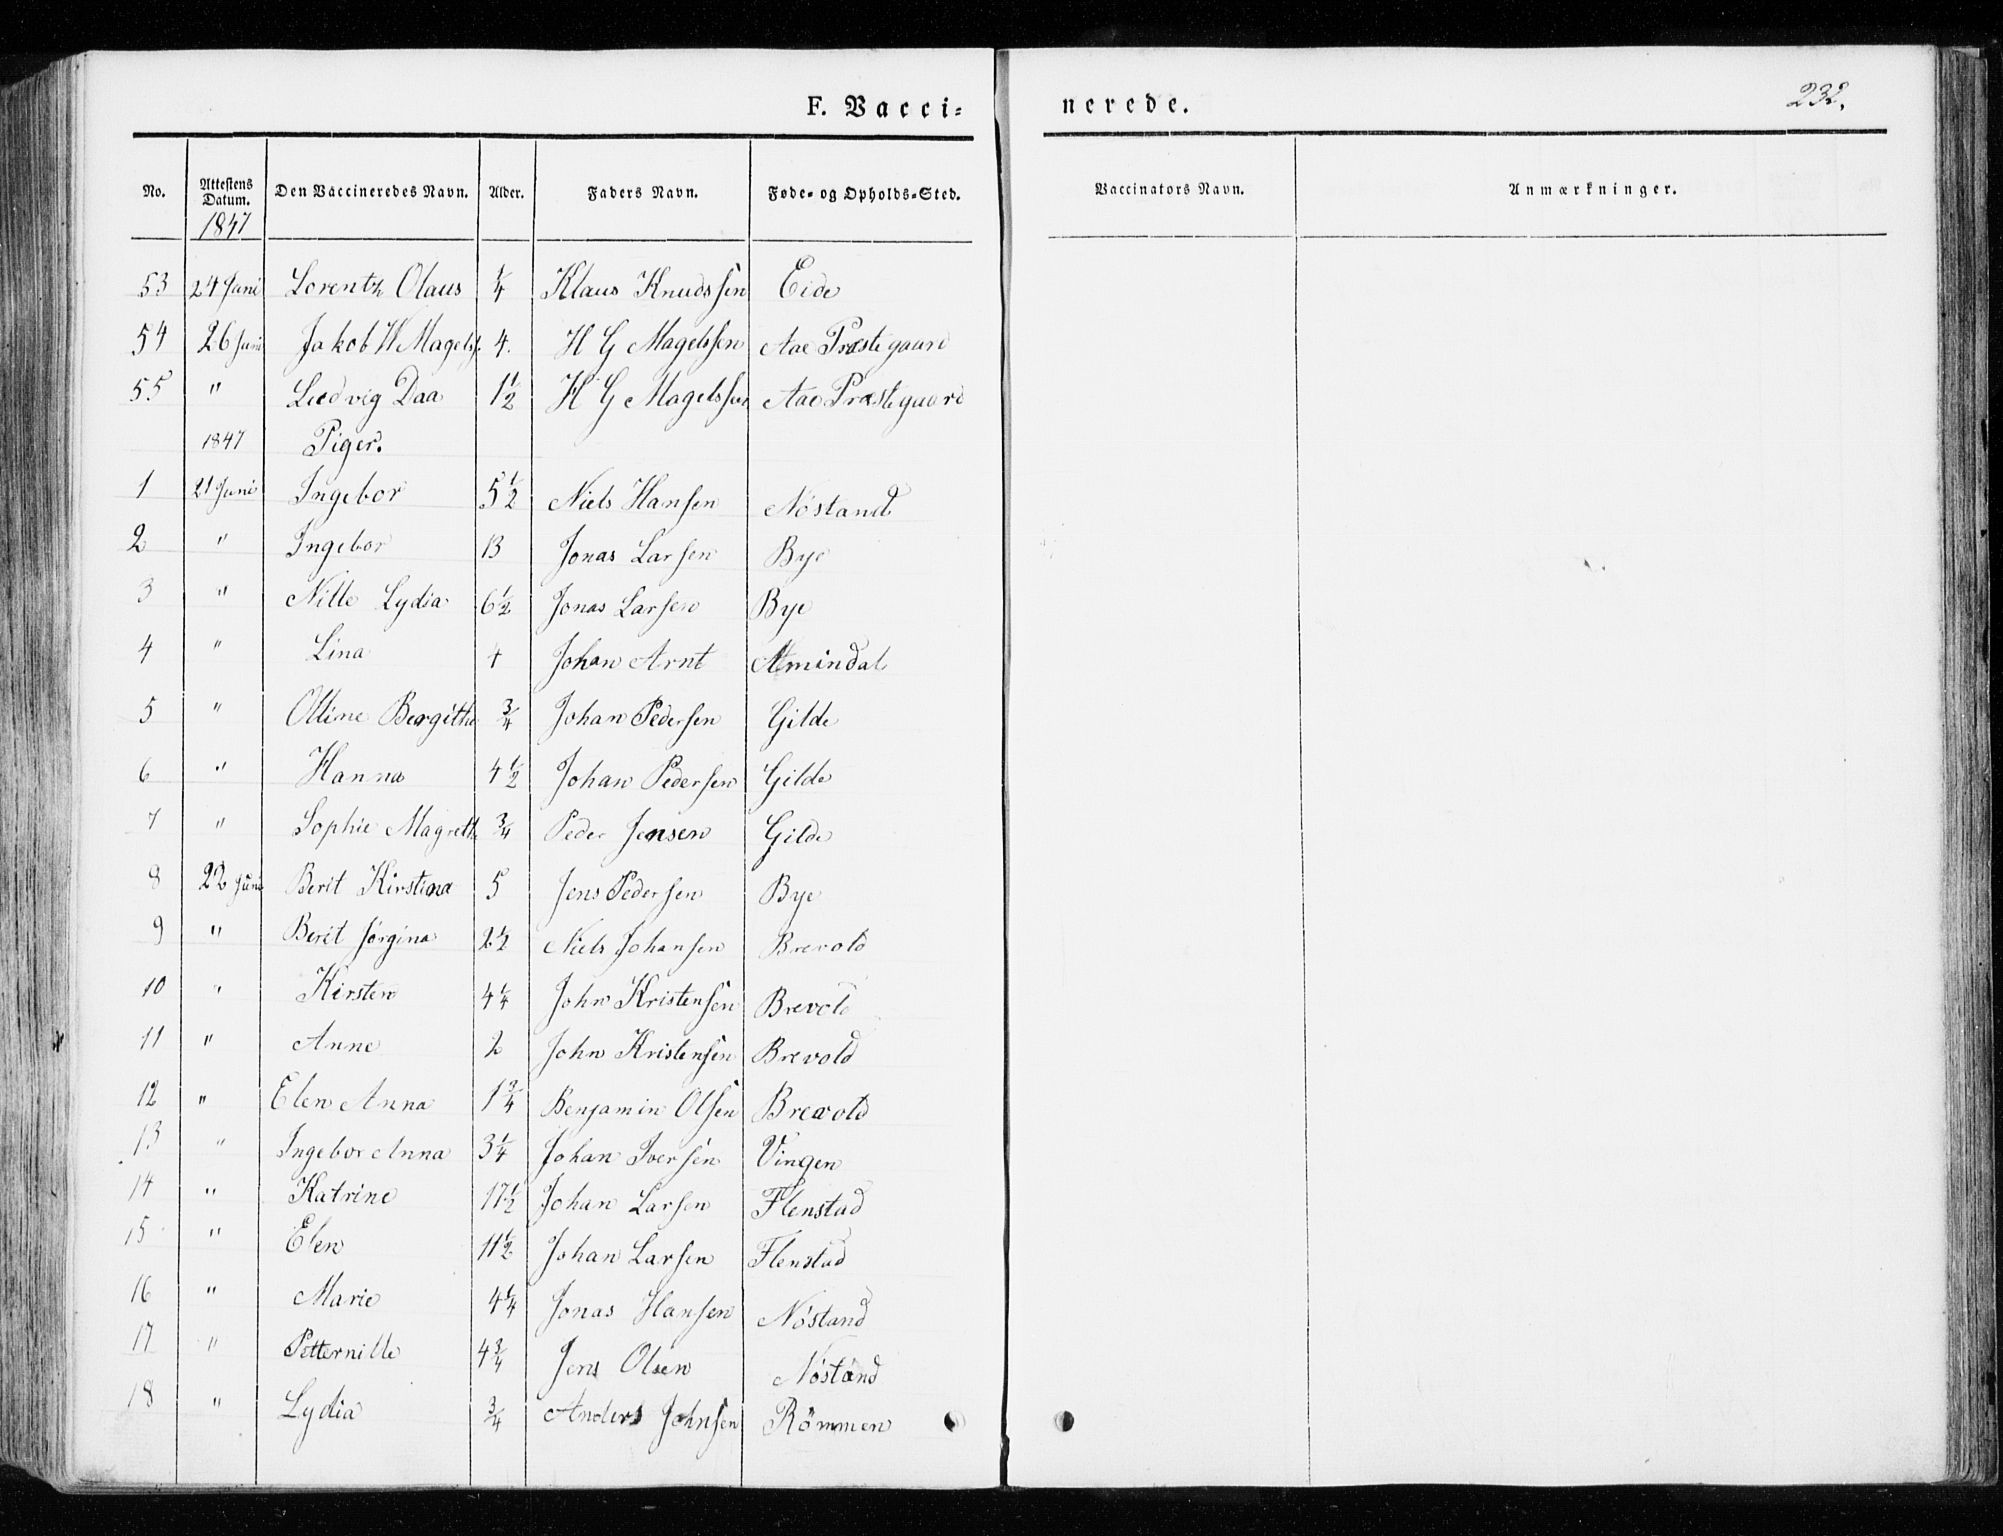 F. Vacci=nerede.
232.
No. Attestens Datum. Den Vaccineredes Navn. Alder. Faders Navn. Føde- og Opholds-Sted. Vaccinators Navn. Anmærkninger.
1847
53 24 Juni Lorentz Olaus 1/4 Klaus Knudssen Eide
54 26 Juni Jakob W Magelss. 4. H G Magelssen Aae Præstegaard
55 " Ludvig Daa 1 1/2 H G Magelssen Aae Præstegaard
1847 Piger.
1 21 Juni Ingebor 5 1/2 Niels Hansen Nøstand
2 " Ingebor 13 Jonas Larsen Bye
3 " Nille Lydia 6 1/2 Jonas Larsen Bye
4 " Lina Johan Arnt Almindal
5 " Olline Bergithe 3/4 Johan Pedersen Gilde
6 " Hanna 4 1/2 Johan Pedersen Gilde
7 " Sophie Magrethe 3/4 Peder Jensen Gilde
8 22 Juni Berit Kirstina 5 Jens Pedersen Bye
9 " Berit Jørgina 2 1/2 Niels Johansen Brevold
10 " Kirsten 4 1/4 John Kristensen Brevold
11 " Anne 2 John Kristensen Brevold
12 " Elen Anna 1 3/4 Benjamin Olsen Brevold
13 " Ingebor Anna 3 1/4 Johan Iversen Vingen
14 " Katrine 17 1/2 Johan Larsen Flenstad
15 " Elen 11 1/2 Johan Larsen Flenstad
16 " Marie 4 1/4 Jonas Hansen Nøstand
17 " Petternille 4 3/4 Jens Olsen Nøstand
18 " Lydia 3/4 Anders Johnsen Römmen